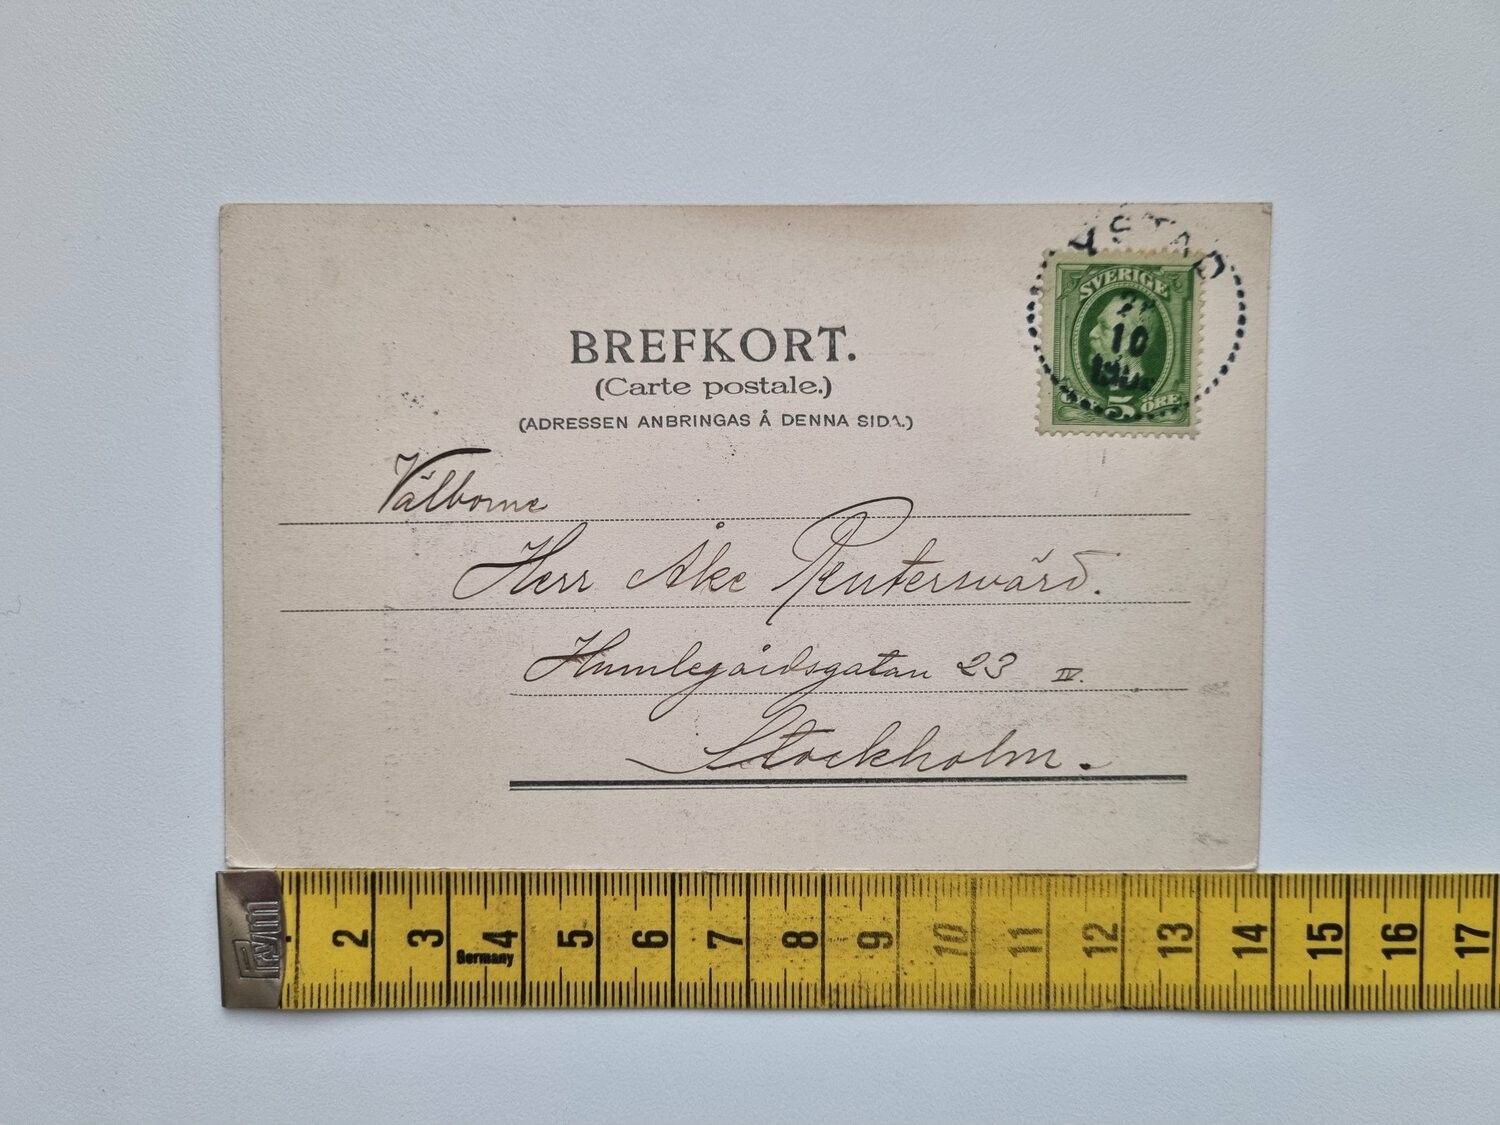 YSTAD
SVERIGE
10
5 ÖRE
BREFKORT.
(Carte postale.)
(ADRESSEN ANBRINGAS Å DENNA SIDA.)
Välborne
Herr Åke Reutersvärd.
Humlegårdsgatan 23 IV.
Stockholm.
Prym
2 3 4 5 6 7 8 9 10 11 12 13 14 15 16 17
Germany